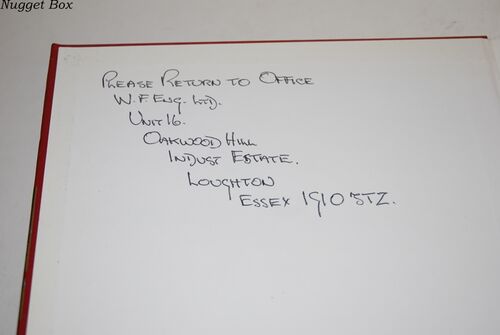 Nugget Box
PLEASE RETURN TO OFFICE
W.F ENG. LTD.
UNIT 16.
OAKWOOD HILL
INDUST ESTATE.
LOUGHTON
ESSEX 1910 3TZ.